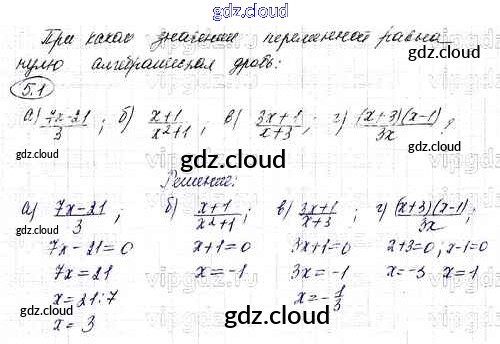 gdz.cloud
При каком значении переменной равна
нулю алгебраическая дробь:
gdz.cloud
5.1
а) 7x-21/3 ; б) x+1/x²+1 ; в) 3x+1/x+3 ; г) (x+3)(x-1)/3x ?
gdz.cloud
gdz.cloud
gdz.cloud
Решение:
а) 7x-21/3 ; б) x+1/x²+1 ; в) 3x+1/x+3 ; г) (x+3)(x-1)/3x ;
gdz.cloud
gdz.cloud
7x-21=0 x+1=0 3x+1=0 x+3=0; x-1=0
7x=21 x=-1 3x=-1 x=-3 x=1
x=21:7 x=-1/3
x=3
gdz.cloud
gdz.cloud
gdz.cloud